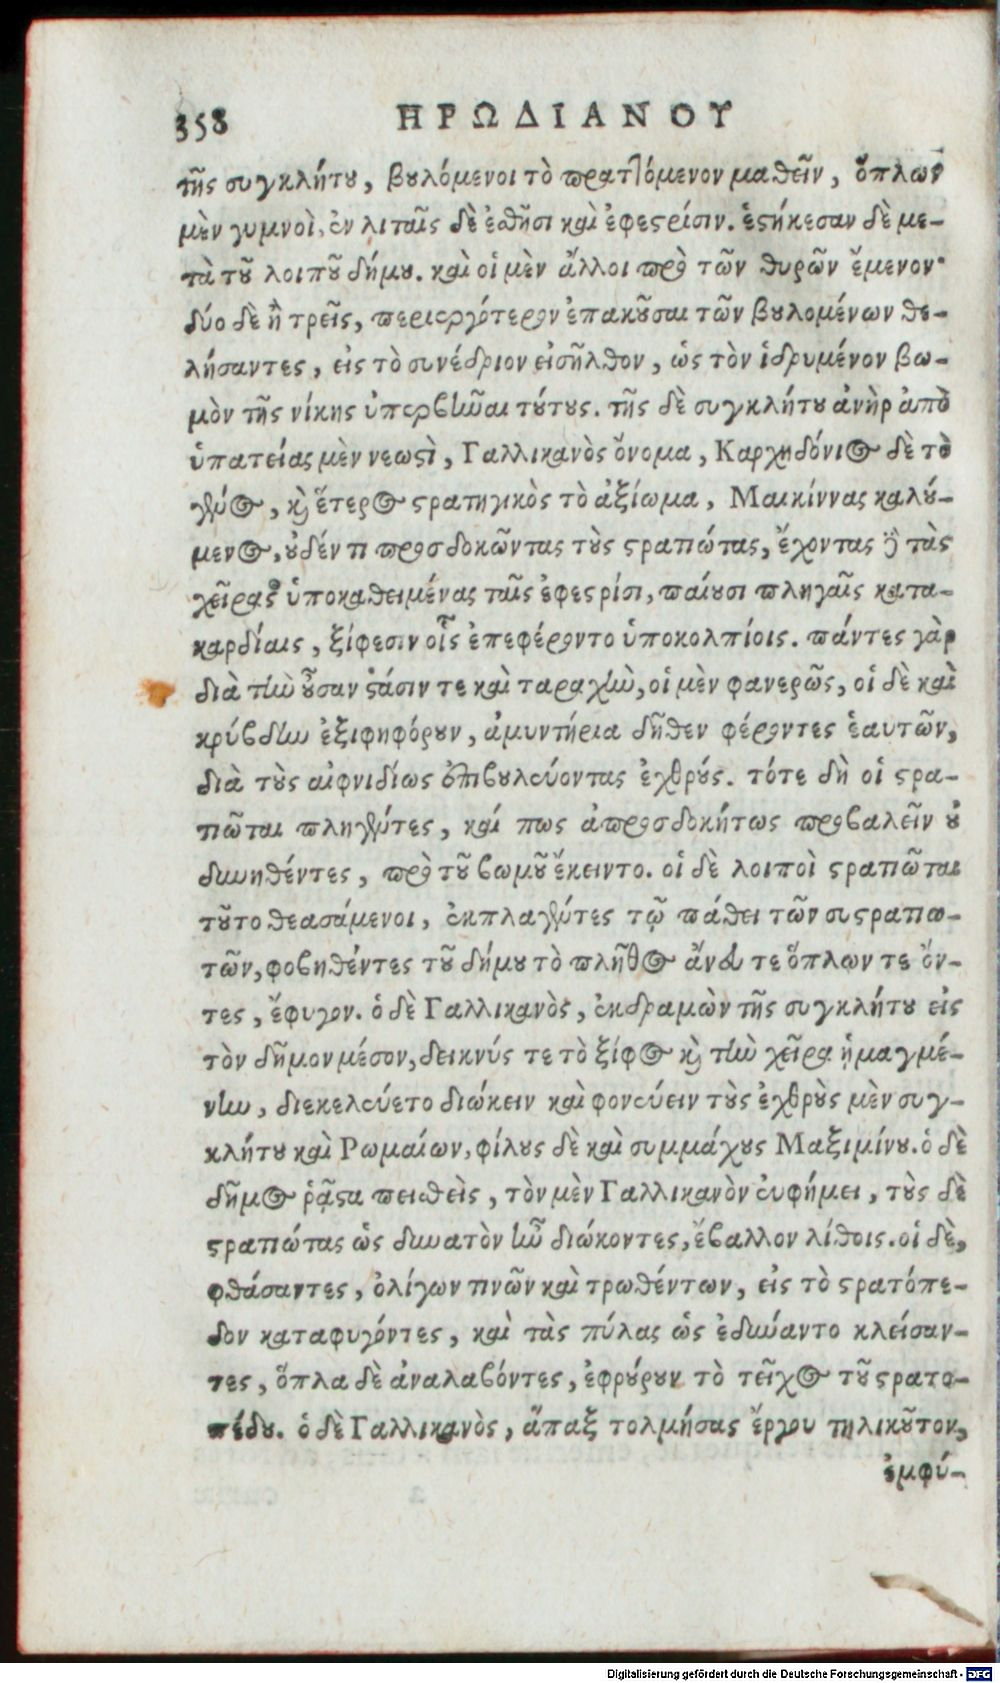 358 ΗΡΩΔΙΑΝΟΥ
τῆς συγκλήτου, βουλόμενοι τὸ πραττόμενον μαθεῖν, ὅπλων
μὲν γυμνοὶ, ἐν λιταῖς δὲ ἐσθῆσι καὶ ἐφεστρίσιν. ἑστήκεσαν δὲ με-
τὰ τοῦ λοιποῦ δήμου. καὶ οἱ μὲν ἄλλοι πρὸ τῶν θυρῶν ἔμενον·
δύο δὲ ἢ τρεῖς, περιεργότερον ἐπακοῦσαι τῶν βουλομένων θε-
λήσαντες, εἰς τὸ συνέδριον εἰσῆλθον, ὡς τὸν ἱδρυμένον βω-
μὸν τῆς νίκης ὑπερβῆναι τούτους. τῆς δὲ συγκλήτου ἀνὴρ ἀπὸ
ὑπατείας μὲν νεωστὶ, Γαλλικανὸς ὄνομα, Καρχηδόνιος δὲ τὸ
γένος, καὶ ἕτερος στρατηγικὸς τὸ ἀξίωμα, Μαικίννας καλού-
μενος, οὐδέν τι προσδοκῶντας τοὺς στρατιώτας, ἔχοντας δὲ τὰς
χεῖρας ὑποκαθειμένας ταῖς ἐφεστρίσι, παίουσι πληγαῖς κατα-
καρδίαις, ξίφεσιν οἷς ἐπεφέροντο ὑποκολπίοις. πάντες γὰρ
διὰ τὴν οὖσαν στάσιν τε καὶ ταραχὴν, οἱ μὲν φανερῶς, οἱ δὲ καὶ
κρύβδην ἐξιφηφόρουν, ἀμυντήρια δῆθεν φέροντες ἑαυτῶν,
διὰ τοὺς αἰφνιδίως ἐπιβουλεύοντας ἐχθρούς. τότε δὴ οἱ στρα-
τιῶται πληγέντες, καί πως ἀπροσδοκήτως προβαλεῖν οὐ
δυνηθέντες, πρὸ τοῦ βωμοῦ ἔκειντο. οἱ δὲ λοιποὶ στρατιῶται
τοῦτο θεασάμενοι, ἐκπλαγέντες τῷ πάθει τῶν συστρατιω-
τῶν, φοβηθέντες τοῦ δήμου τὸ πλῆθος ἄνευ τε ὅπλων τε ὄν-
τες, ἔφυγον. ὁ δὲ Γαλλικανὸς, ἐκδραμὼν τῆς συγκλήτου εἰς
τὸν δῆμον μέσον, δεικνύς τε τὸ ξίφος καὶ τὴν χεῖρα ᾑμαγμέ-
νην, διεκελεύετο διώκειν καὶ φονεύειν τοὺς ἐχθροὺς μὲν συγ-
κλήτου καὶ Ρωμαίων, φίλους δὲ καὶ συμμάχους Μαξιμίνου. ὁ δὲ
δῆμος ῥᾷστα πεισθεὶς, τὸν μὲν Γαλλικανὸν εὐφήμει, τοὺς δὲ
στρατιώτας ὡς δυνατὸν ἦν διώκοντες, ἔβαλλον λίθοις. οἱ δὲ,
φθάσαντες, ὀλίγων τινῶν καὶ τρωθέντων, εἰς τὸ στρατόπε-
δον καταφυγόντες, καὶ τὰς πύλας ὡς ἐδύναντο κλείσαν-
τες, ὅπλα δὲ ἀναλαβόντες, ἐφρούρουν τὸ τεῖχος τοῦ στρατο-
πέδου. ὁ δὲ Γαλλικανὸς, ἅπαξ τολμήσας ἔργου τηλικοῦτον,
ἐμφύ-
Digitalisierung gefördert durch die Deutsche Forschungsgemeinschaft - DFG